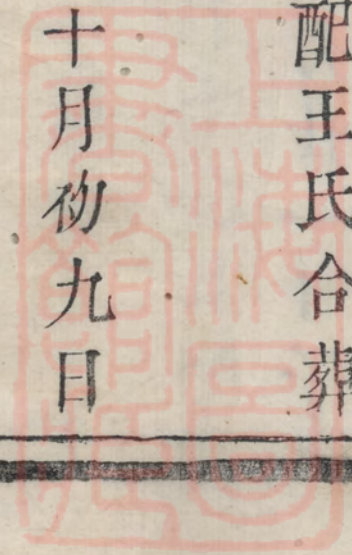 配王氏合葬
十月初九日
上海图書館藏